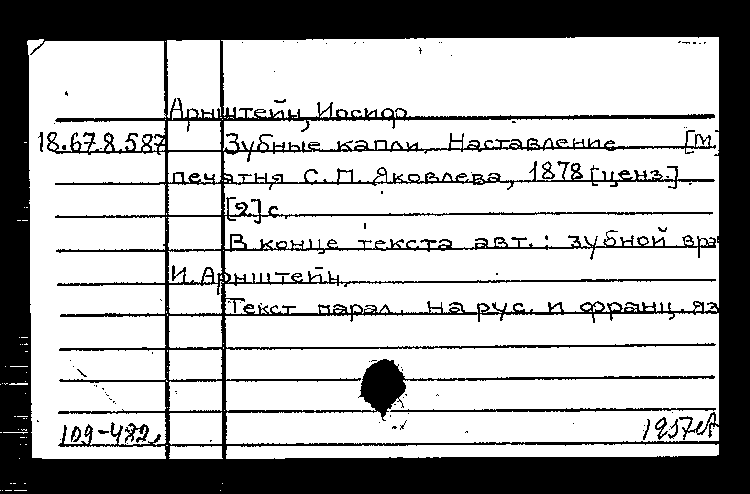 Арнштейн, Иосиф
18.67.8.587 Зубные капли. Наставление [М.]
печатня С.П. Яковлева, 1878 [ценз.].
[2] с.
В конце текста авт.: зубной вра
И. Арнштейн.
Текст парал. на рус. и франц. яз
109-482